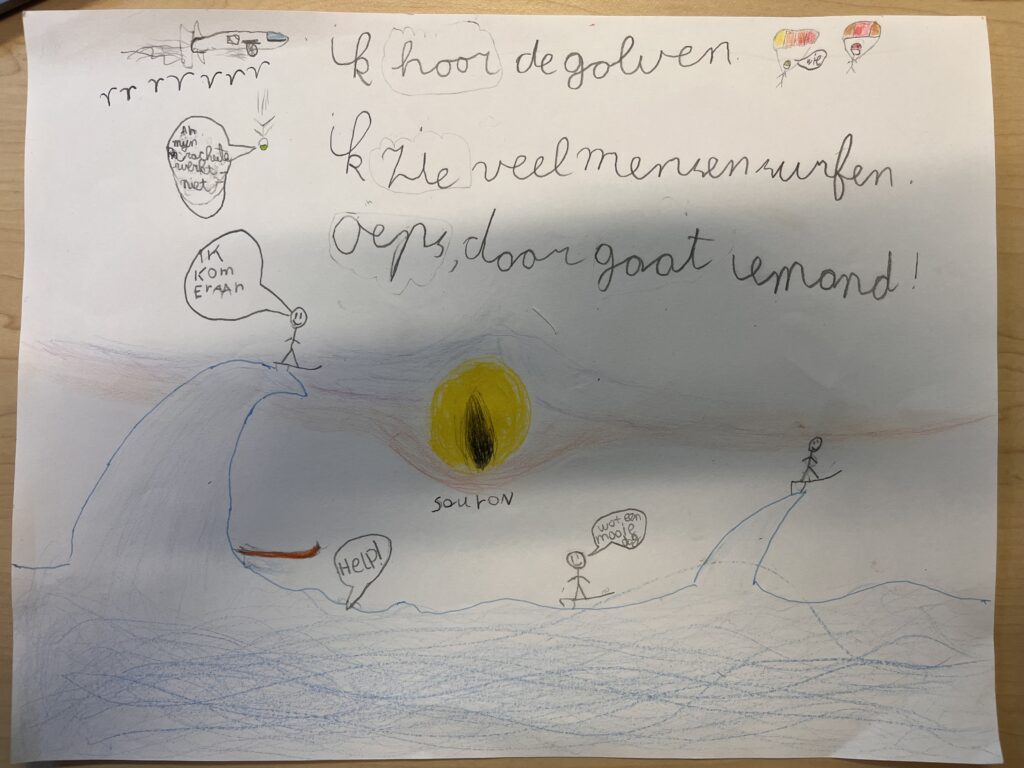 Ik hoor de golven.
Ik zie veel mensen surfen.
Oeps, daar gaat iemand!
Ah
mijn
Parachute
werkt
niet!
IK
KOM
ERAAN
SauroN
HELP!
wat een
mooie